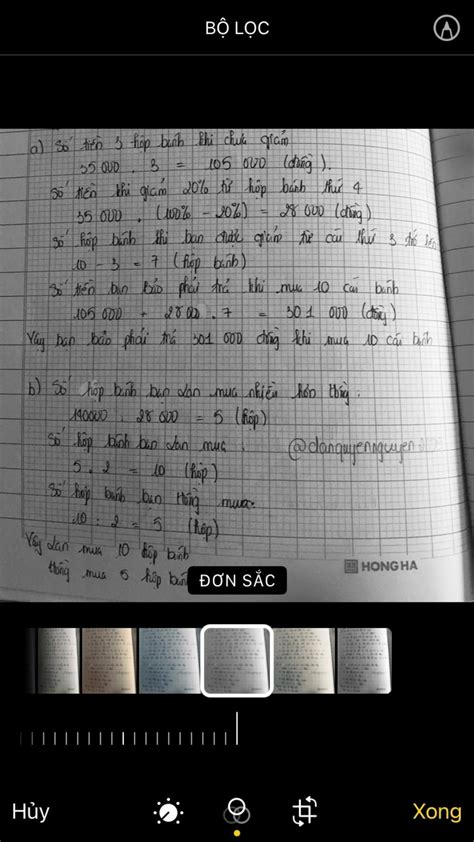 BỘ LỌC
a) Số tiền 3 hộp bánh khi chưa giảm
35 000 . 3 = 105 000 (đồng).
Số tiền khi giảm 20% từ hộp bánh thứ 4
35 000 . (100% - 20%) = 28 000 (đồng)
Số hộp bánh khi bạn được giảm từ cái thứ 3 trở lên
10 - 3 = 7 (hộp bánh)
Số tiền bạn Bảo phải trả khi mua 10 cái bánh
105 000 + 28 000 . 7 = 301 000 (đồng)
Vậy bạn bảo phải trả 301 000 đồng khi mua 10 cái bánh
b) Số hộp bánh bạn Lan mua nhiều hơn Hồng.
140000 : 28 000 = 5 (hộp)
Số hộp bánh bạn Lan mua.
@danquyennguyen
5 . 2 = 10 (hộp)
Số hộp bánh bạn Hồng mua.
10 : 2 = 5 (hộp)
Vậy Lan mua 10 hộp bánh
Hồng mua 5 hộp bánh
HONG HA
ĐƠN SẮC
Hủy
Xong